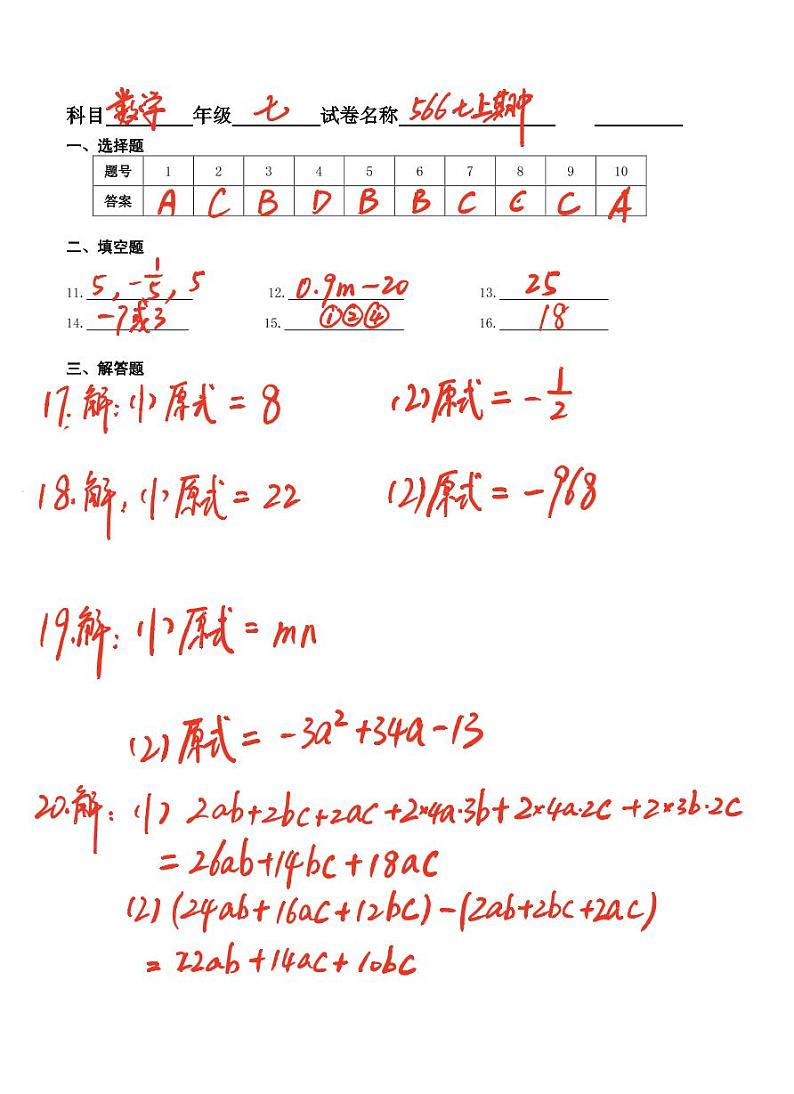 科目 数学 年级 七 试卷名称 566七上期中
一、选择题
题号 1 2 3 4 5 6 7 8 9 10
答案 A C B D B B C C C A
二、填空题
11. 5, -1/5, 5 12. 0.9m-20 13. 25
14. -7或3 15. ①②④ 16. 18
三、解答题
17.解:(1)原式=8 (2)原式=-1/2
18.解:(1)原式=22 (2)原式=-968
19.解:(1)原式=mn
(2)原式=-3a²+34a-13
20.解:(1) 2ab+2bc+2ac+2×4a·3b+2×4a·2c+2×3b·2c
=26ab+14bc+18ac
(2)(24ab+16ac+12bc)-(2ab+2bc+2ac)
=22ab+14ac+10bc